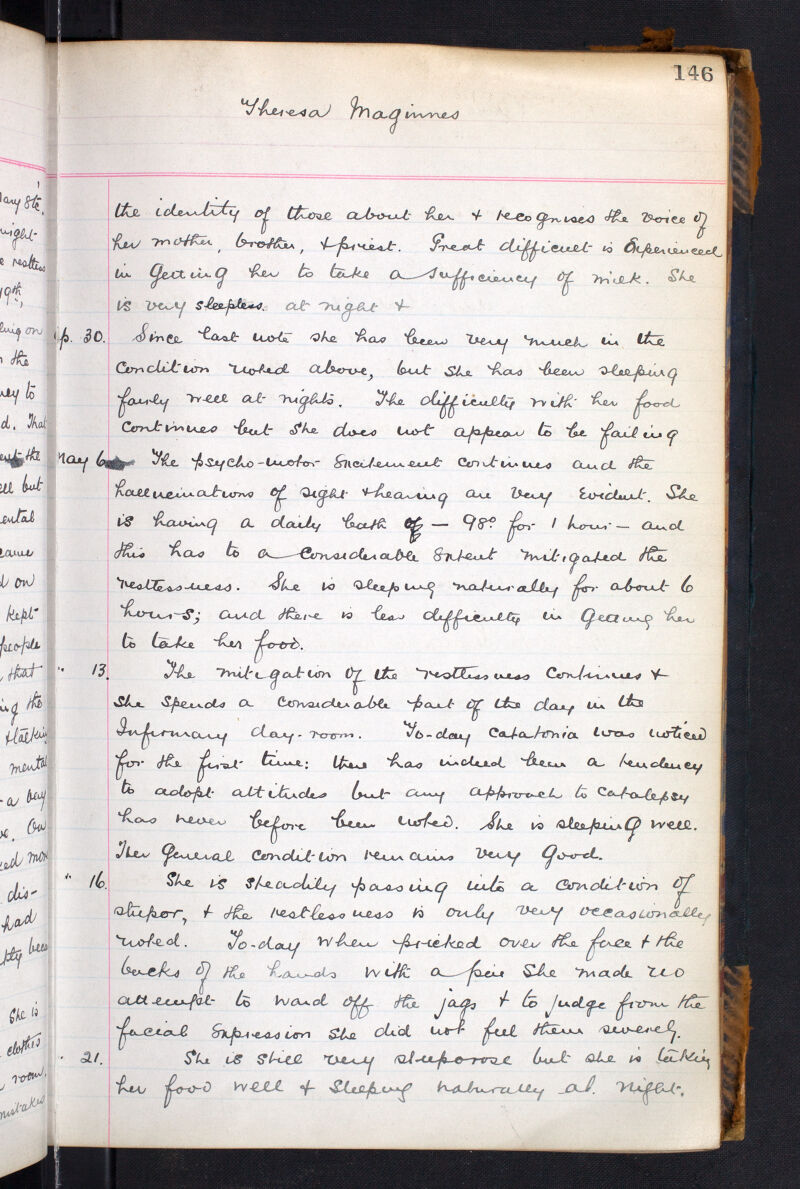 146
Theresa Maginnes
the identity of those about her & recognises the voice of
her mother, brother, & priest. Great difficuet is experienced
in getting her to take a sufficiency of milk. She
is very sleepless at night &
Ap. 30. Since last note she has been very much in the
condition noted above, but she has been sleeping
fairly well at nights. The difficulty with her food
continues but she does not appear to be failing
May 6 The psycho-motor excitement continues and the
hallucinations of sight & hearing are very evident. She
is having a daily bath of — 98° for 1 hour — and
this has to a considerable extent mitigated the
restlessness. She is sleeping naturally for about 6
hours; and there is less difficulty in getting her
to take her food.
" 13. The mitigation of the restlessness continues &
she spends a considerable part of the day in the
Infirmary day-room. To-day catatonia was noticed
for the first time: there has indeed been a tendency
to adopt attitudes but any approach to catalepsy
has never before been noted. She is sleeping well.
Her general condition remains very good.
" 16. She is steadily passing into a condition of
stupor, & the restlessness is only very occasionally
noted. To-day when pricked over the face & the
backs of the hands with a pin she made no
attempt to ward off the jags & to judge from the
facial expression she did not feel them severely.
" 21. She is still very stuporose but she is taking
her food well & sleeping naturally at night.